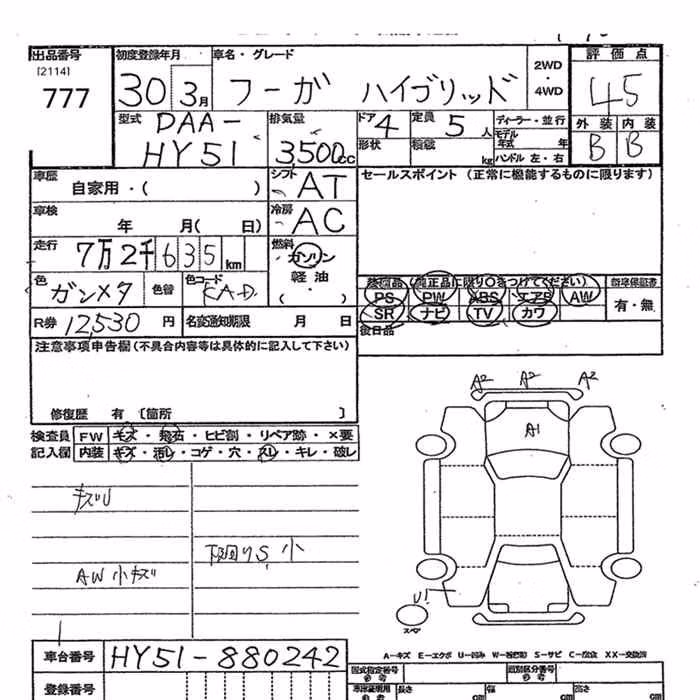 出品番号
[2114]
777
初度登録年月
30 3月
車名・グレード
フーガ ハイブリッド
2WD
・
4WD
評価点
45
外装 内装
B B
型式
DAA-
HY51
排気量
3,500cc
ドア 4
定員 5人
形状
積載 kg
ディーラー・並行
モデル年式 年
ハンドル 左・右
車歴
自家用・( )
シフト AT
セールスポイント(正常に機能するものに限ります)
車検
年 月( 日)
冷房 AC
走行 7万2千635km
燃料
ガソリン
軽油
( ・ )
色 ガンメタ
色替
色コード KAD
装備品(純正品に限り○をつけてください)
PS PW ABS エアB AW
SR ナビ TV カワ
新車保証書
有・無
R券 12,530円
名変通知期限 月 日
後日品
注意事項申告欄(不具合内容等は具体的に記入して下さい)
修復歴 有 [箇所 ]
検査員
記入欄
FW キズ・飛石・ヒビ割・リペア跡・×要
内装 キズ・汚レ・コゲ・穴・スレ・キレ・破レ
キズU
下回りS小
AW小キズ
A2 A2 A2
A1
U1
スペア
A-キズ E-エクボ U-凹み W-補修跡 S-サビ C-腐食 XX-交換済
車台番号 HY51-880242
登録番号
型式指定番号
参考
類別区分番号
参考
車検証明用
参考
長さ cm
幅 cm
高さ cm